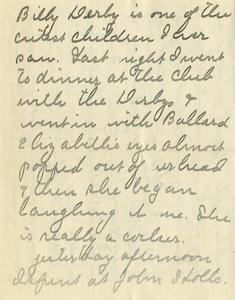 Billy Derby is one of the
cutest children I ever
saw. Last night I went
to dinner at the Club
with the Derbys &
went in with Bullard
Elizabeth's eyes almost
popped out of her head
& then she began
laughing at me. She
is really a corker.
yesterday afternoon
I spent at John